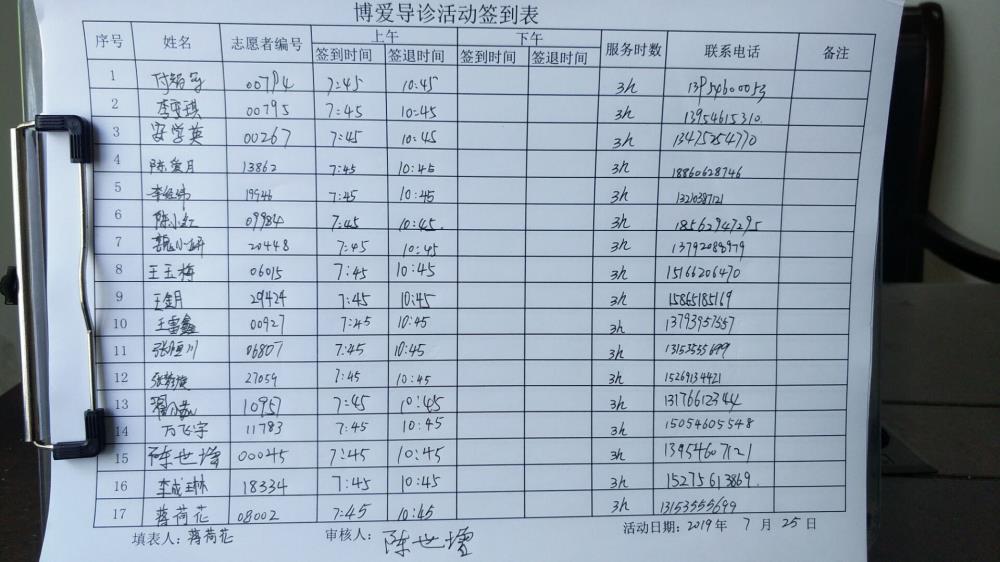 博爱导诊活动签到表
序号 姓名 志愿者编号 上午 下午 服务时数 联系电话 备注
签到时间 签退时间 签到时间 签退时间
1 00794 7:45 10:45 3h 13954600053
2 李雯琪 00795 7:45 10:45 3h 13954615310
3 安学英 00267 7:45 10:45 3h 13475254770
4 陈爱月 13862 7:45 10:45 3h 18860628746
5 李经纬 19946 7:45 10:45 3h
6 陈小红 09984 7:45 10:45 3h 18562947295
7 魏小妍 20448 7:45 10:45 3h 13792088979
8 王玉梅 06015 7:45 10:45 3h 15166206470
9 王金月 29424 7:45 10:45 3h 15865185169
10 王雷鑫 00927 7:45 10:45 3h 13793957557
11 张恒川 06807 7:45 10:45 3h 13153555699
12 27059 7:45 10:45 3h 15269134421
13 10957 7:45 10:45 3h 13176612344
14 万飞宇 11783 7:45 10:45 3h 15054605548
15 陈世增 00045 7:45 10:45 3h 13954607121
16 李成林 18334 7:45 10:45 3h 15275613869
17 蒋荷花 08002 7:45 10:45 3h 13153555699
填表人：蒋荷花 审核人：陈世增 活动日期：2019年 7月 25日